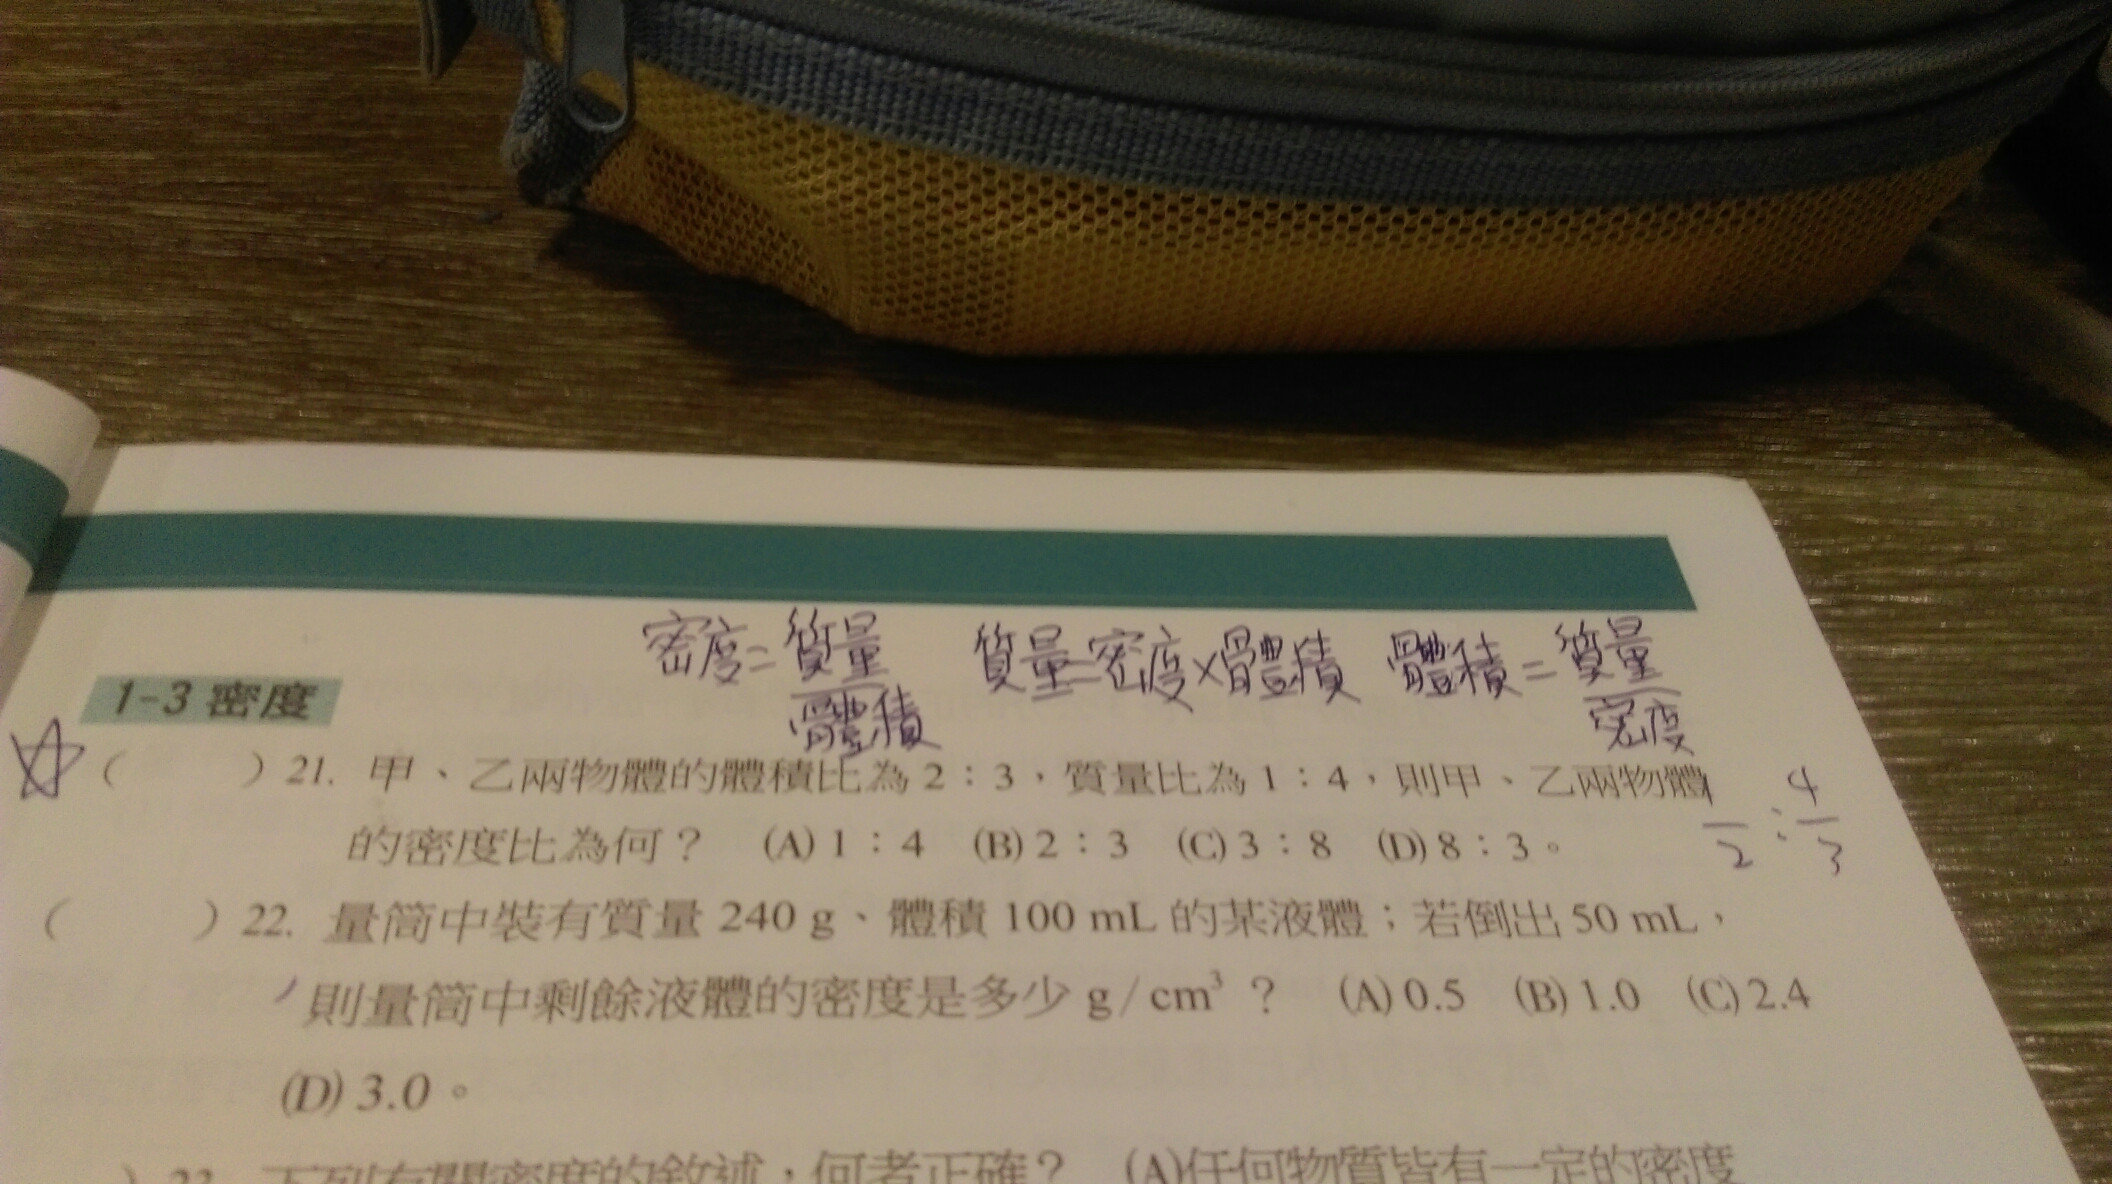 密度=質量/體積 質量=密度×體積 體積=質量/密度
1-3 密度
☆( )21. 甲、乙兩物體的體積比為 2：3，質量比為 1：4，則甲、乙兩物體
的密度比為何？ (A) 1：4 (B) 2：3 (C) 3：8 (D) 8：3。
1/2 : 4/3
( )22. 量筒中裝有質量 240 g、體積 100 mL 的某液體；若倒出 50 mL，
則量筒中剩餘液體的密度是多少 g/cm³？ (A) 0.5 (B) 1.0 (C) 2.4
(D) 3.0。
)23. 下列有關密度的敘述，何者正確？ (A)任何物質皆有一定的密度